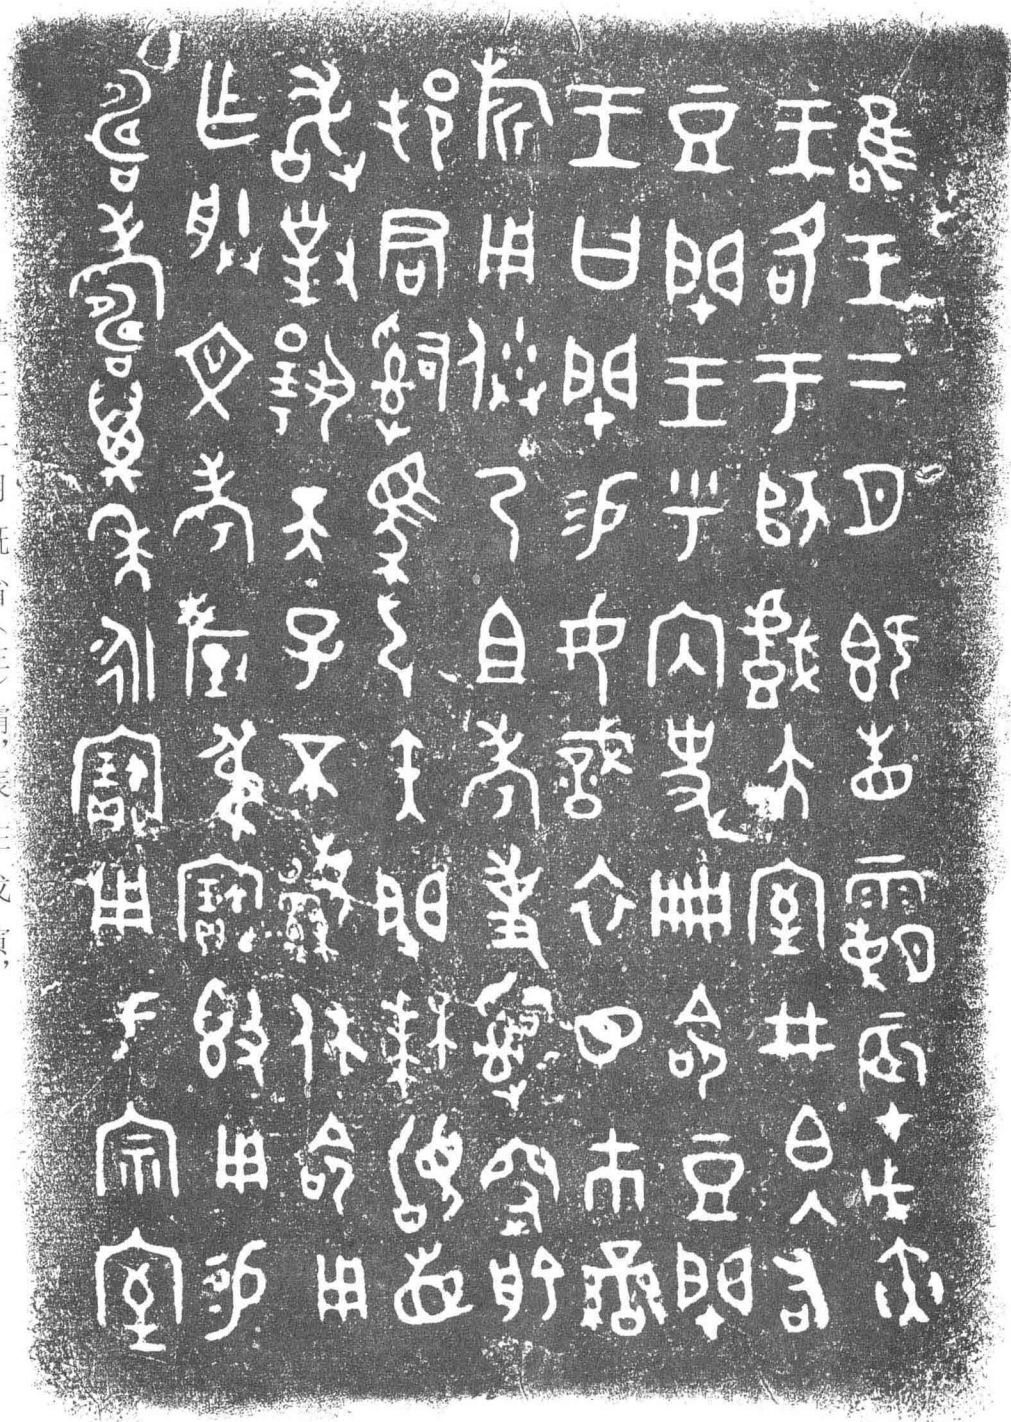 唯王二月既眚霸辰才戊寅
王各于師戲大室井白入右
豆閉王乎内史冊命豆閉
王曰閉易女戠衣⊗巿鑾
旂用倂乃且考事𤔲窑俞
邦君𤔲馬弓矢閉拜𩒨首
敢對揚天子不顯休命用
乍朕文考釐弔寶𣪘用易
𠷎壽萬年永寶用于宗室